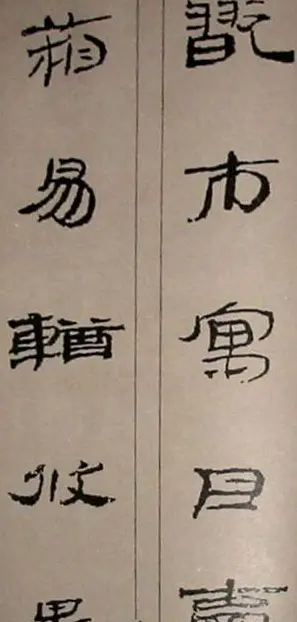 翫市寓目
箱易輶攸